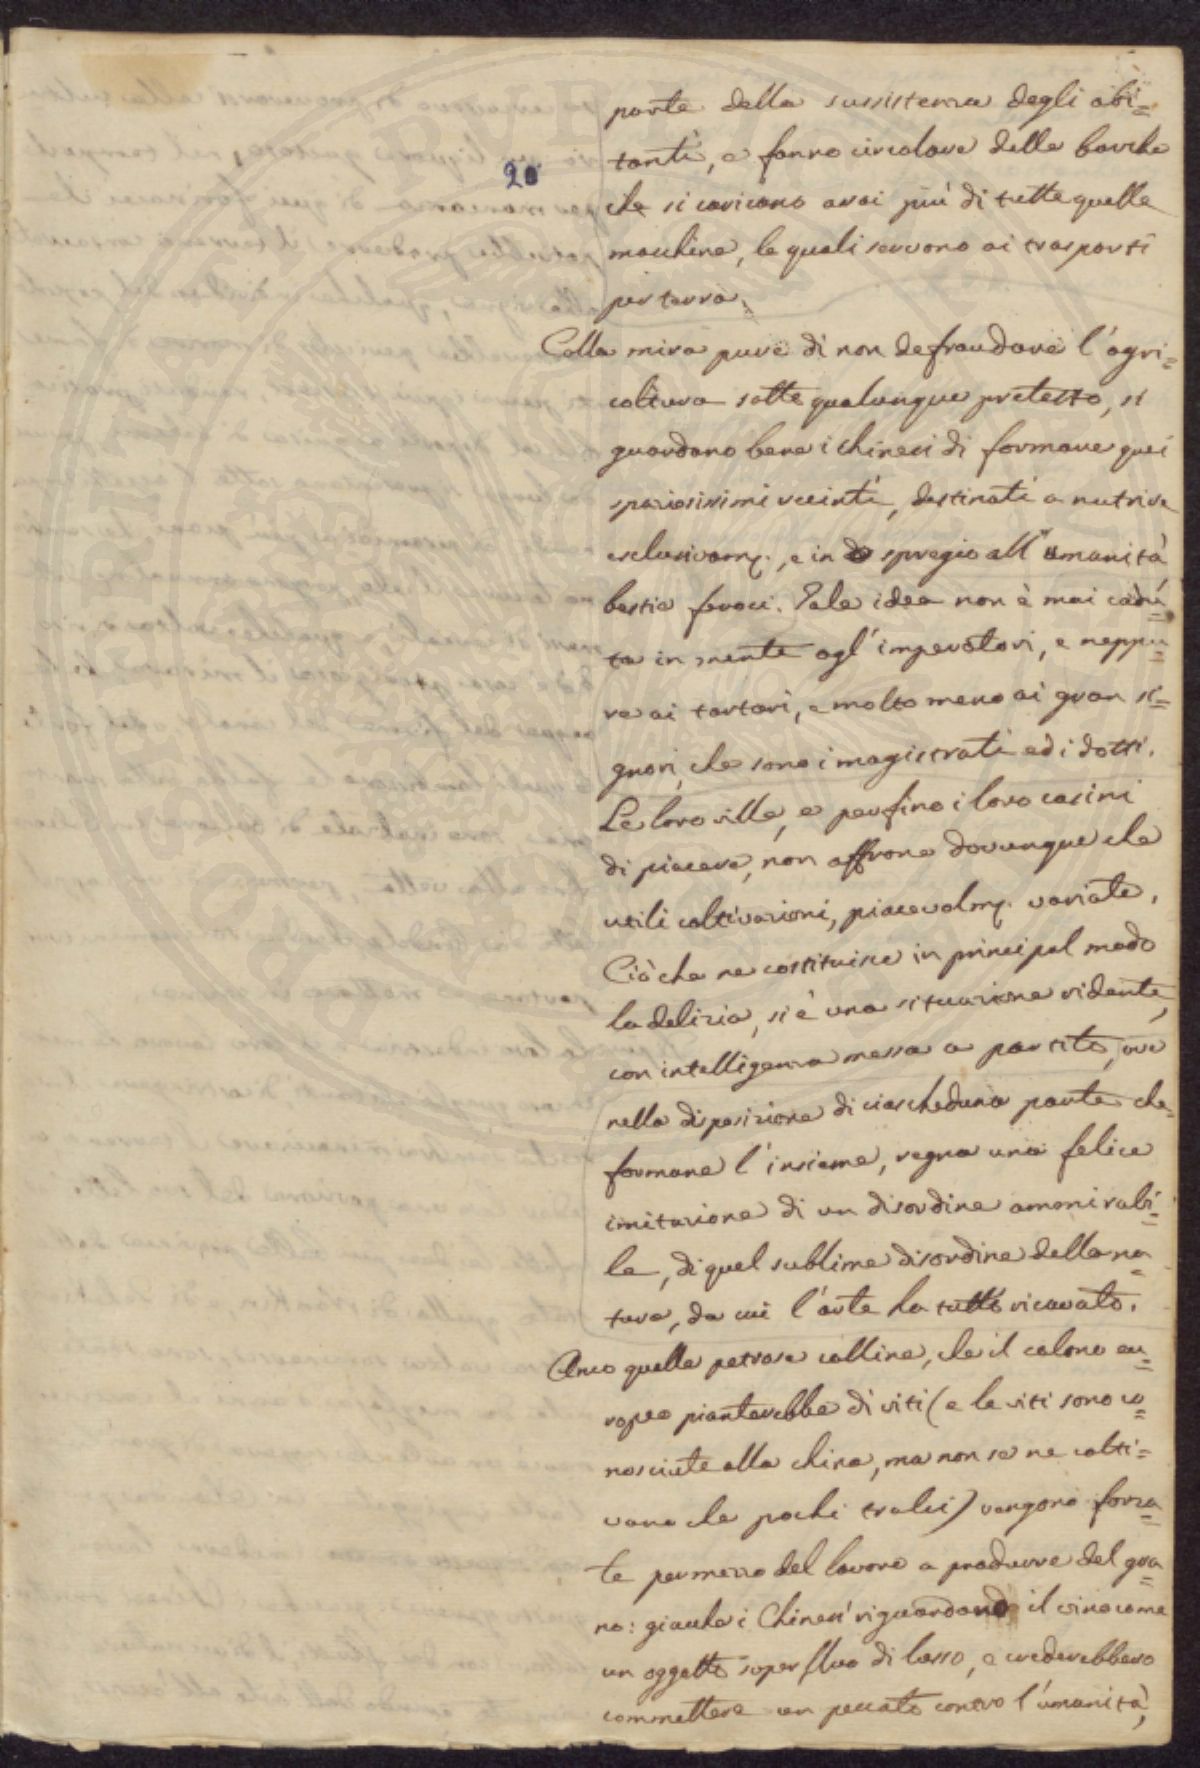 20
parte della sussistenza degli abi=
tanti, e fanno circolare delle barche
che si caricano assai più di tutte quelle
macchine, le quali servono ai trasporti
per terra.
Colla mira pure di non defraudare l'agri=
coltura sotto qualunque pretesto, si
guardano bene i chinesi di formare quei
spaziosissimi recinti, destinati a nutrire
esclusivam., e in spregio all'umanità
bestie feroci. Tale idea non è mai cadu=
ta in mente agl'imperatori, e neppu=
re ai tartari, e molto meno ai gran si=
gnori, che sono i magistrati ed i dotti.
Le loro ville, e perfino i loro casini
di piacere, non offrono dovunque che
utili coltivazioni, piacevolm. variate.
Ciò che ne costituisce in principal modo
la delizia, si è una situazione ridente,
con intelligenza messa a partito, ove
nella disposizione di ciascheduna parte che
formane l'insieme, regna una felice
imitazione di un disordine amonirabi=
le, di quel sublime disordine della na=
tura, da cui l'arte ha tutto ricavato.
Anco quelle petrose colline, che il colono eu=
ropeo pianterebbe di viti (e le viti sono co=
nosciute alla china, ma non se ne colti=
vano che pochi tralci) vengono forza=
te per mezzo del lavoro a produrre del gra=
no: giacche i Chinesi riguardando il vino come
un oggetto superfluo di lusso, e crederebbero
commettere un peccato contro l'umanità,